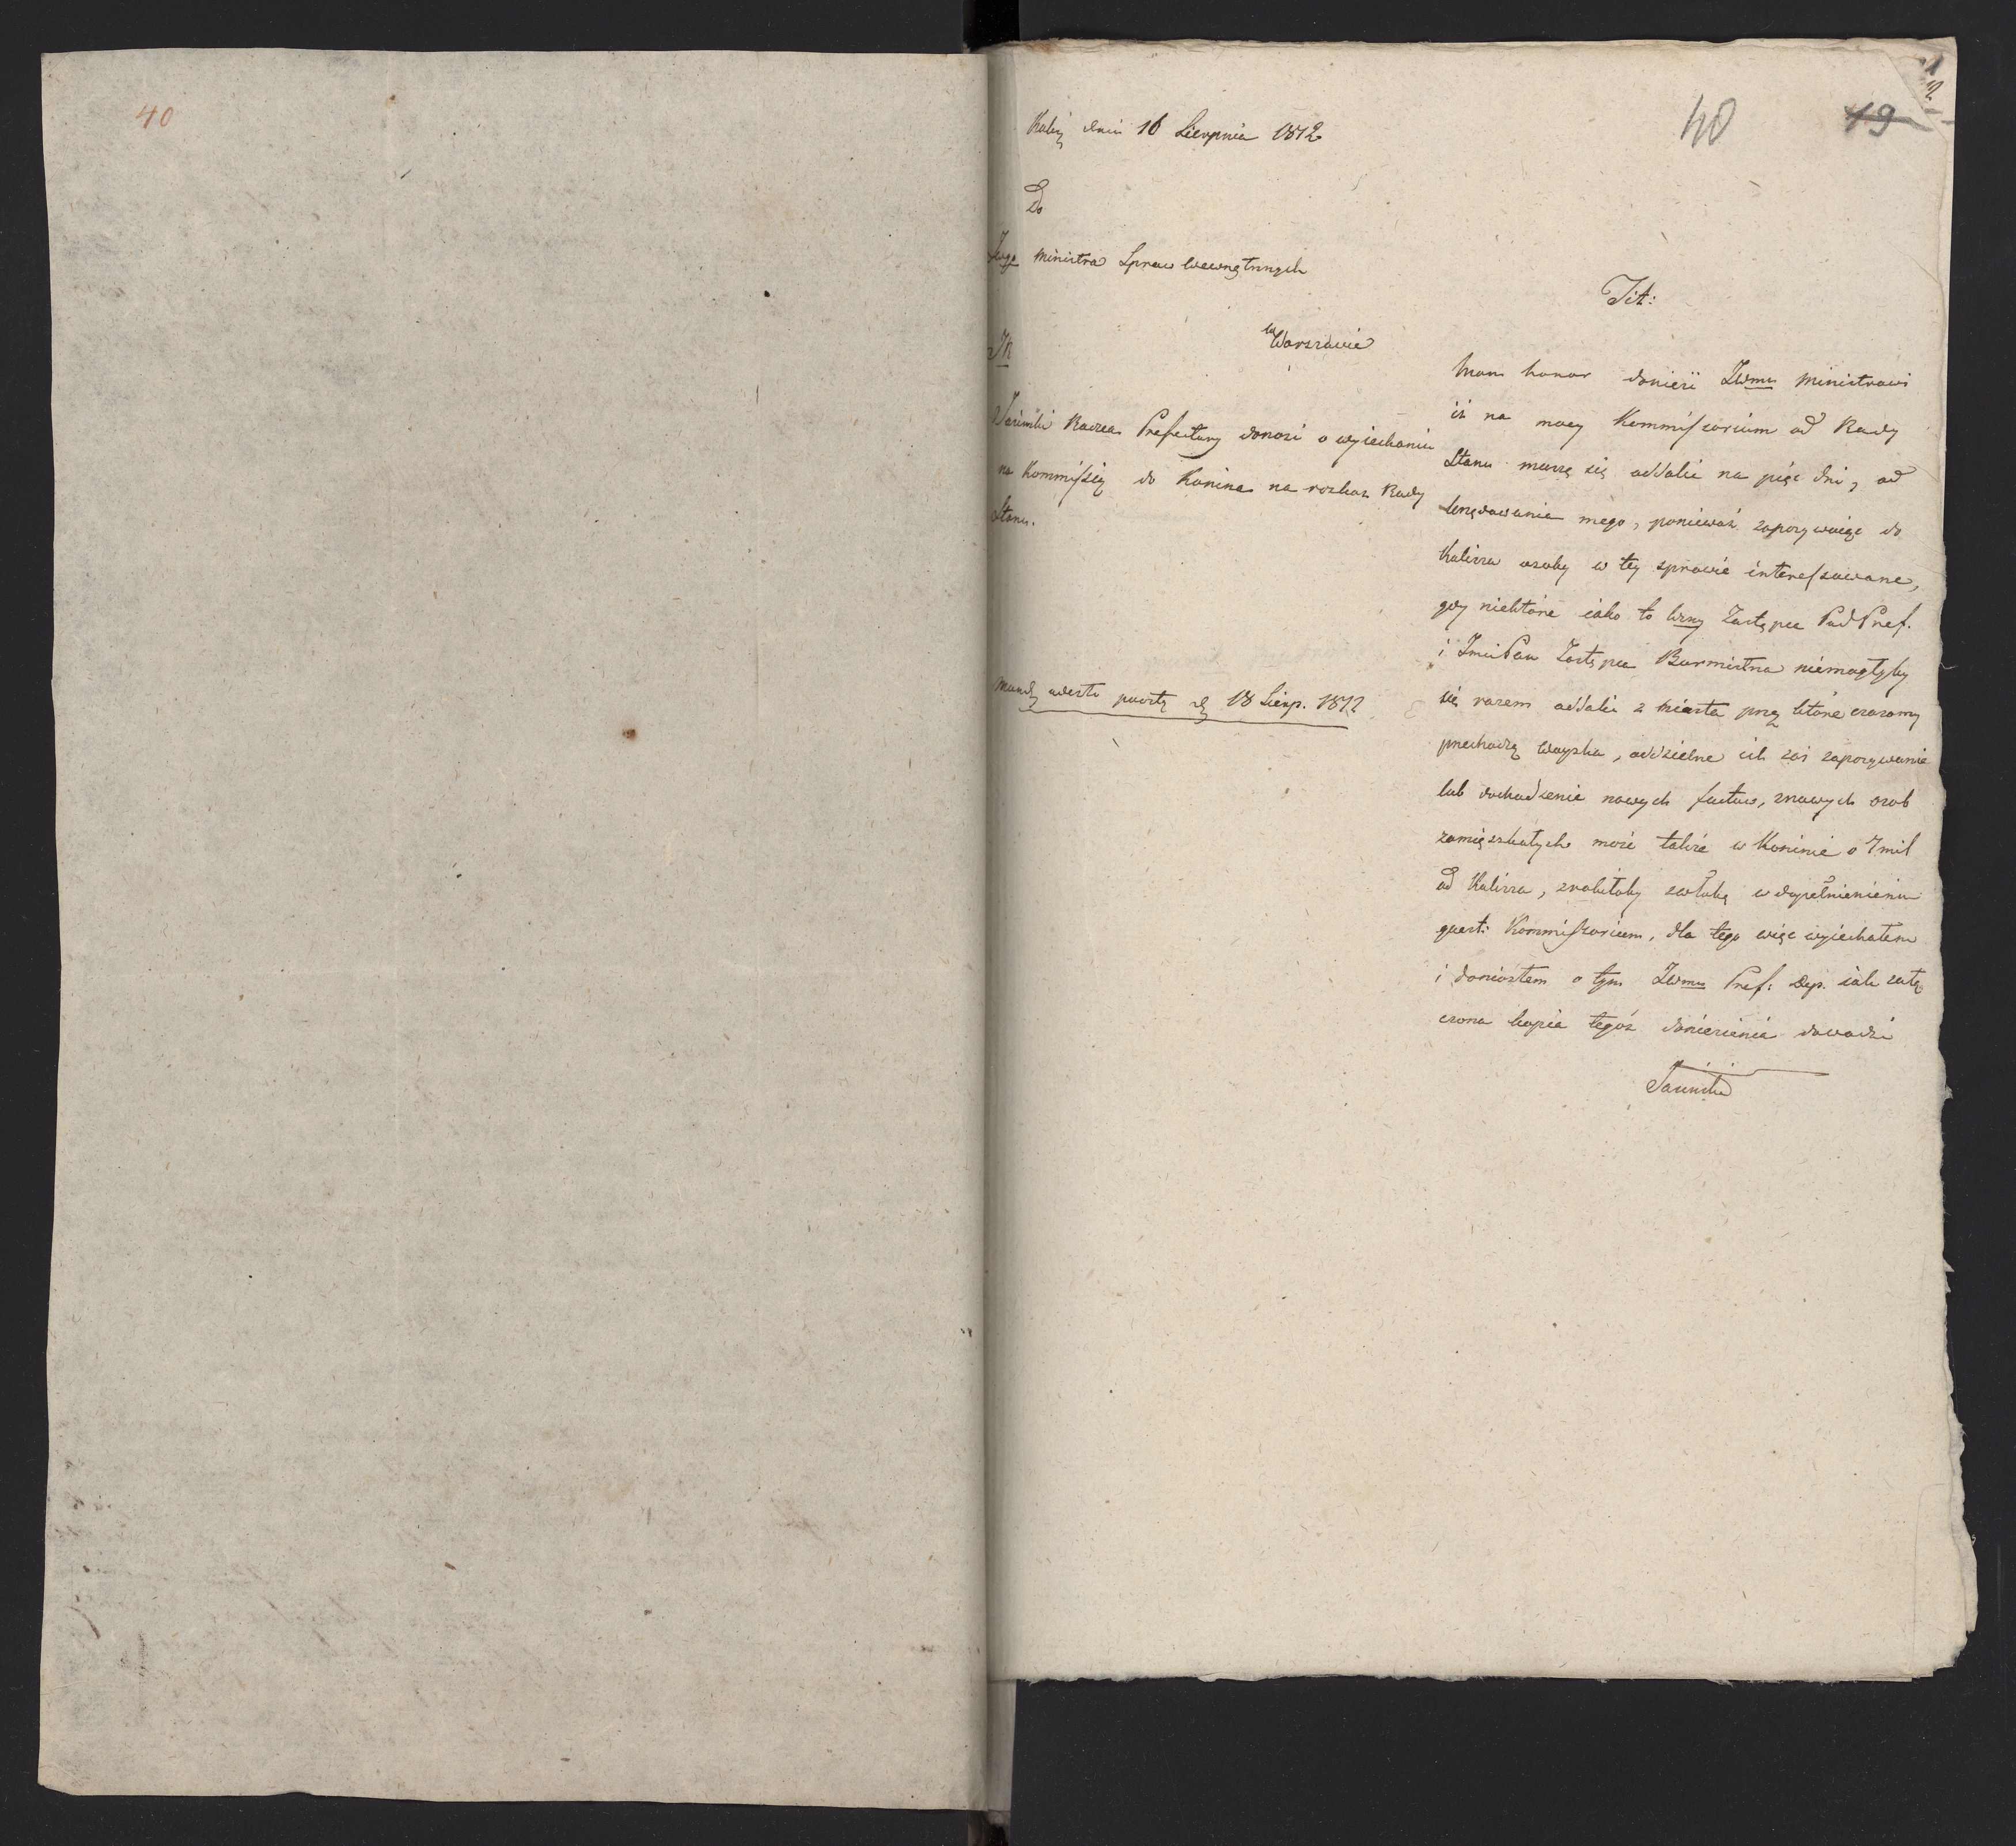 40
40
19
Kalisz dnia 16 Sierpnia 1812
Do
JWgo Ministra Spraw Wewnętrznych
w Warszawie
Radzca Prefektury donosi o wyiechaniu
na Kommissią do Konina na rozkaz Rady
Stanu.
18 Sierp. 1812
Tit:
Mam honor donieść JWmu Ministrowi
iż na mocy Kommissorium od Rady
Stanu muszę się oddalić na pięć dni, od
Urzędowania mego, ponieważ zapozywaiąc do
Kalisza osoby w tey sprawie interessowane,
gdy niektóre iako to Wżny Zastępca PodPref.
i ImciPan Zastępca Burmistrza niemogłyby
się razem oddalić z miasta przez które czasami
przechodzą Woyska, oddzielne ich zaś zapozywanie
lub dochodzenie nowych factów, z nowych osób
zamięszkałych może także w Koninie o 7 mil
od Kalisza, zrobiłoby zwłokę w dopełnieniu
quest: Kommissorium, dla tego więc wyiechałem
i doniosłem o tym JWmu Pref: Dep. iak załą
czona kopia tegoż doniesienia dowodzi